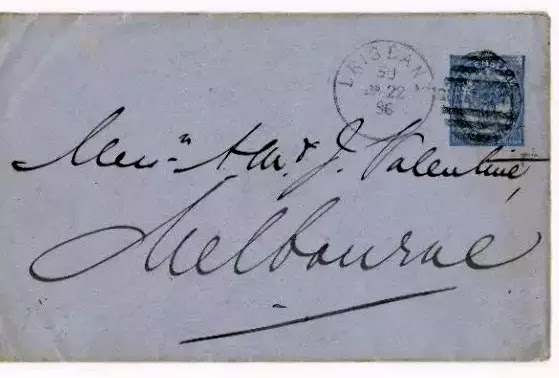 BRISBANE
50
JA 22
96
Mess.rs A. M. & J. Valentine,
Melbourne